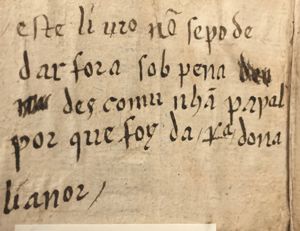 este liuro nõ sepode
dar fora sob pena
descomunhã papal
por que foy da
dona
lianor